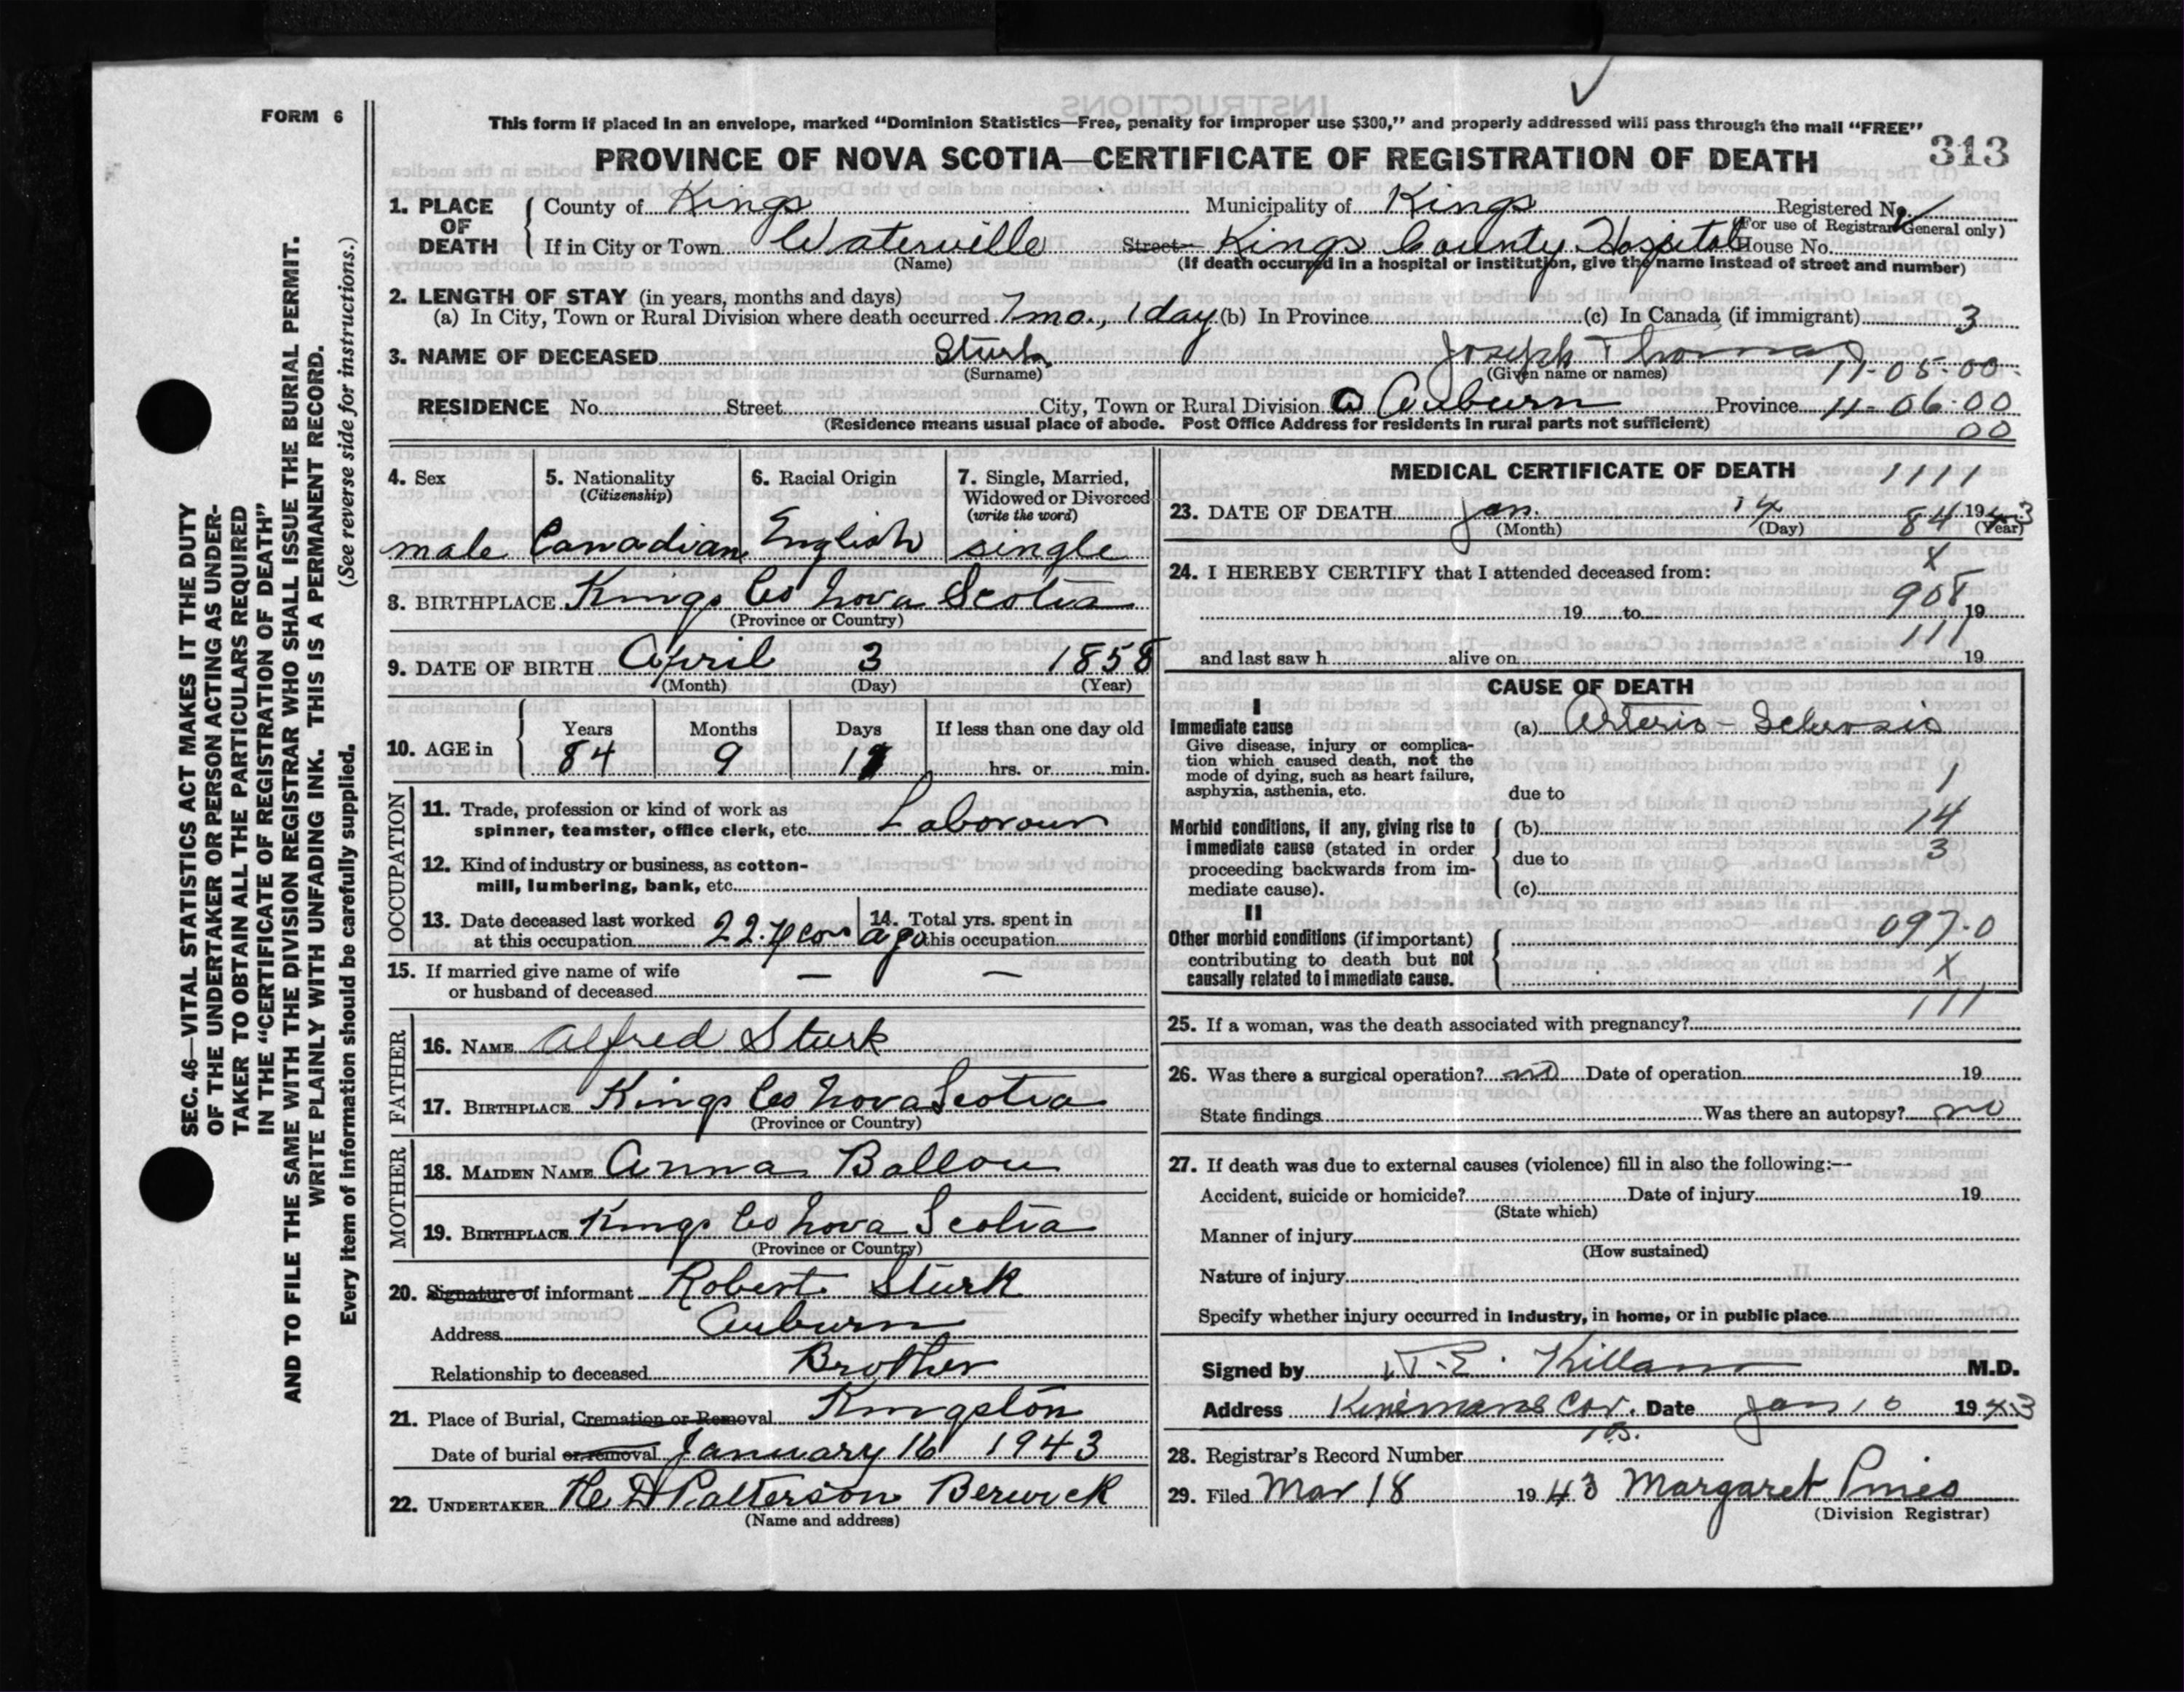 FORM 6
SEC. 46—VITAL STATISTICS ACT MAKES IT THE DUTY
OF THE UNDERTAKER OR PERSON ACTING AS UNDER-
TAKER TO OBTAIN ALL THE PARTICULARS REQUIRED
IN THE "CERTIFICATE OF REGISTRATION OF DEATH"
AND TO FILE THE SAME WITH THE DIVISION REGISTRAR WHO SHALL ISSUE THE BURIAL PERMIT.
WRITE PLAINLY WITH UNFADING INK. THIS IS A PERMANENT RECORD.
Every item of information should be carefully supplied. (See reverse side for instructions.)
This form if placed in an envelope, marked "Dominion Statistics—Free, penalty for improper use $300," and properly addressed will pass through the mail "FREE"
PROVINCE OF NOVA SCOTIA—CERTIFICATE OF REGISTRATION OF DEATH 313
1. PLACE OF DEATH County of Kings Municipality of Kings Registered No.
(For use of Registrar General only)
If in City or Town Waterville Street Kings County Hospital House No.
(Name) (If death occurred in a hospital or institution, give the name instead of street and number)
2. LENGTH OF STAY (in years, months and days)
(a) In City, Town or Rural Division where death occurred 7 mo., 1 day (b) In Province (c) In Canada (if immigrant) 3
3. NAME OF DECEASED Sturk Joseph Thomas
(Surname) (Given name or names) 11-05-00
RESIDENCE No. Street City, Town or Rural Division Auburn Province 11-06-00
(Residence means usual place of abode. Post Office Address for residents in rural parts not sufficient) 00
4. Sex
male
5. Nationality
(Citizenship)
Canadian
6. Racial Origin
English
7. Single, Married,
Widowed or Divorced
(write the word)
single
8. BIRTHPLACE Kings Co Nova Scotia
(Province or Country)
9. DATE OF BIRTH April 3 1858
(Month) (Day) (Year)
10. AGE in Years Months Days If less than one day old
84 9 11 hrs. or min.
OCCUPATION
11. Trade, profession or kind of work as
spinner, teamster, office clerk, etc. Labourer
12. Kind of industry or business, as cotton-
mill, lumbering, bank, etc.
13. Date deceased last worked
at this occupation 22 years ago
14. Total yrs. spent in
this occupation
15. If married give name of wife
or husband of deceased — —
FATHER
16. NAME Alfred Sturk
17. BIRTHPLACE Kings Co Nova Scotia
(Province or Country)
MOTHER
18. MAIDEN NAME Anna Ballou
19. BIRTHPLACE Kings Co Nova Scotia
(Province or Country)
20. Signature of informant Robert Sturk
Address Auburn
Relationship to deceased Brother
21. Place of Burial, Cremation or Removal Kingston
Date of burial or removal January 16 1943
22. UNDERTAKER H. D Patterson Berwick
(Name and address)
MEDICAL CERTIFICATE OF DEATH 1111
23. DATE OF DEATH Jan. 14 1943
(Month) (Day) 84 (Year)
X
24. I HEREBY CERTIFY that I attended deceased from:
19 to 908 19
111
and last saw h alive on 19
CAUSE OF DEATH
I
Immediate cause
Give disease, injury or complica-
tion which caused death, not the
mode of dying, such as heart failure,
asphyxia, asthenia, etc.
(a) Arterio-Sclerosis
1
due to
Morbid conditions, if any, giving rise to
immediate cause (stated in order
proceeding backwards from im-
mediate cause).
(b) 14
due to 3
(c)
II
Other morbid conditions (if important)
contributing to death but not
causally related to immediate cause.
097-0
X
111
25. If a woman, was the death associated with pregnancy?
26. Was there a surgical operation? no Date of operation 19
State findings Was there an autopsy? no
27. If death was due to external causes (violence) fill in also the following:—
Accident, suicide or homicide? Date of injury 19
(State which)
Manner of injury
(How sustained)
Nature of injury
Specify whether injury occurred in industry, in home, or in public place
Signed by Killam M.D.
Address Kinsmans Cor. Date Jan 1943
28. Registrar's Record Number
29. Filed Mar 18 1943 Margaret Pineo
(Division Registrar)